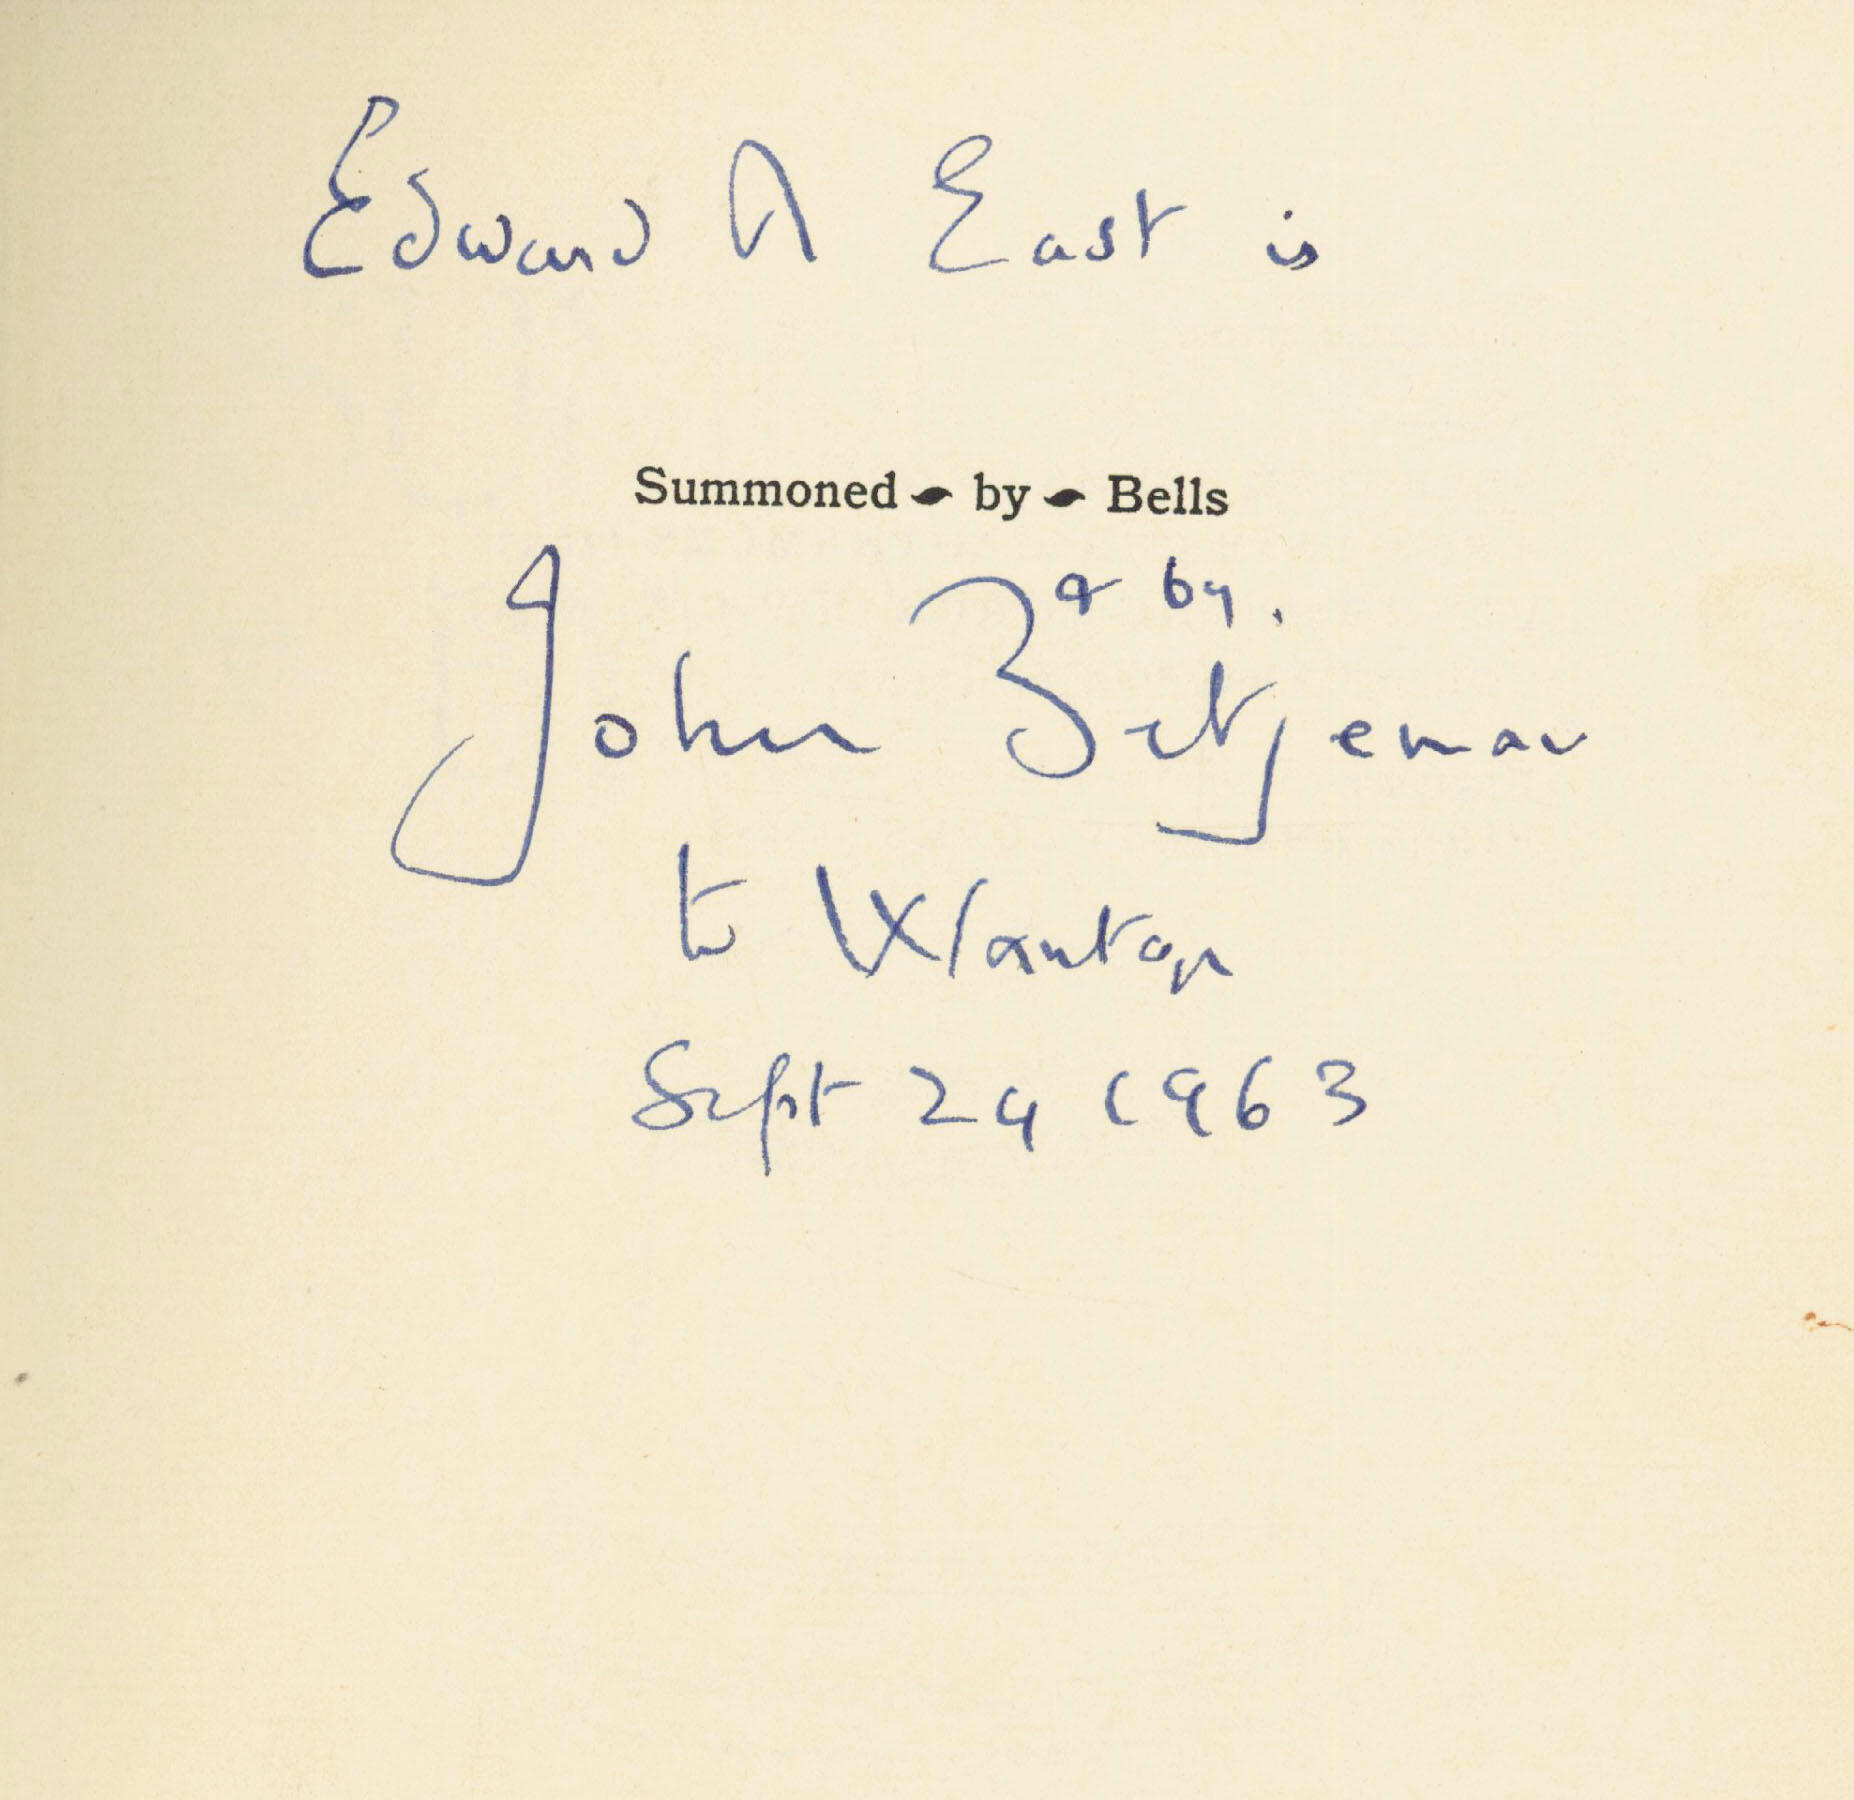 Edward A East is
Summoned by Bells
& by.
John Betjeman
to Wantage
Sept 24 1963